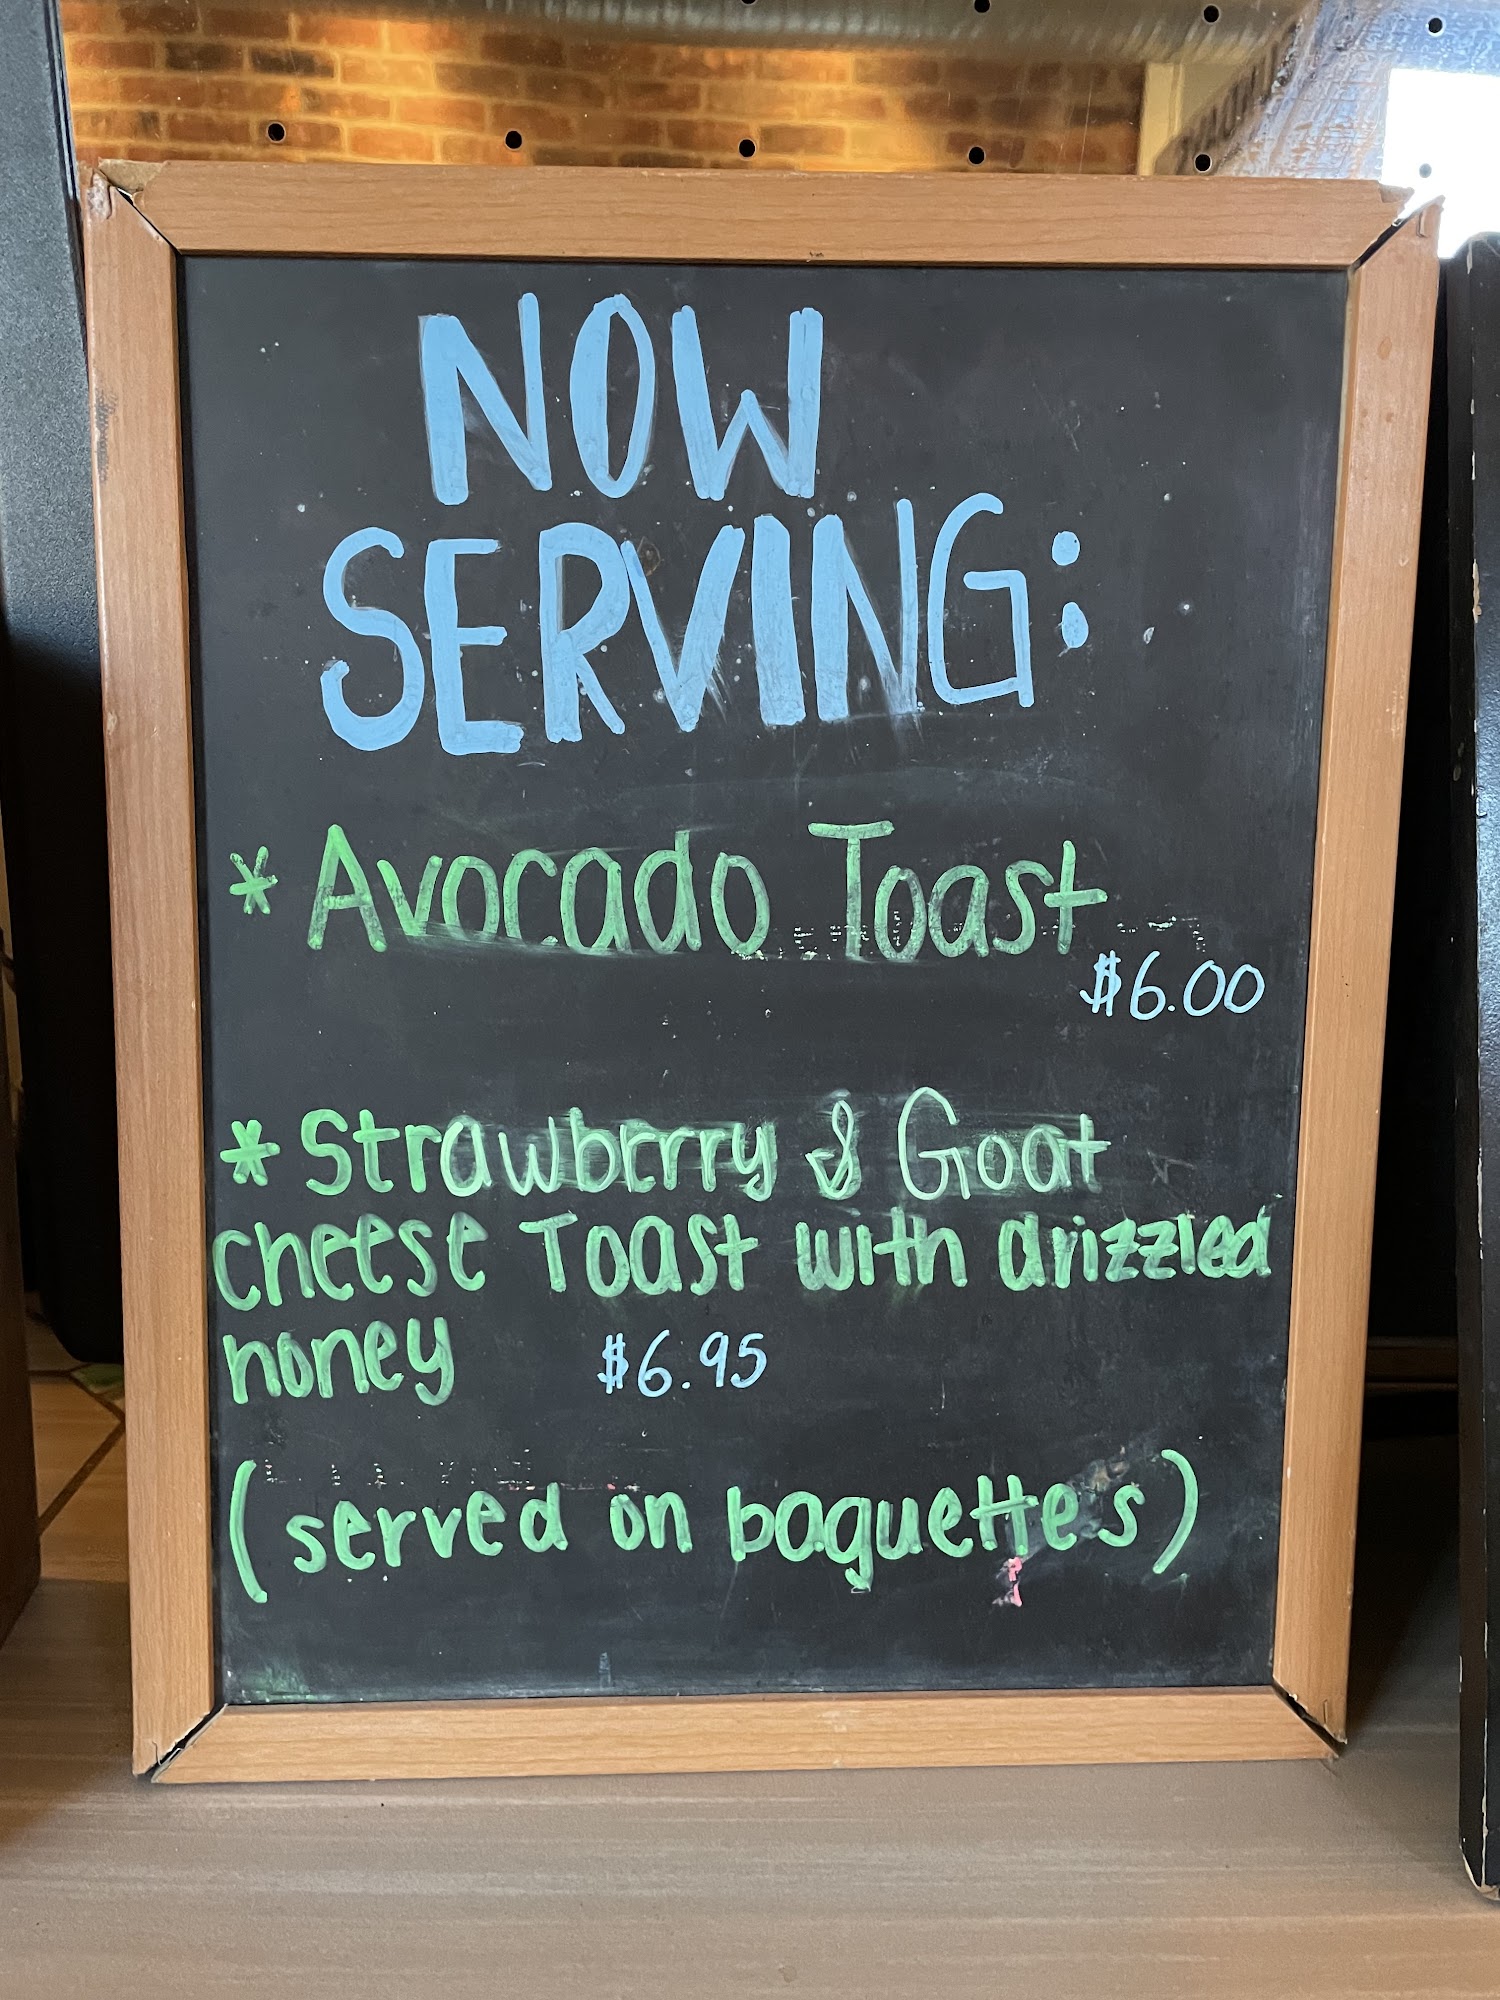 NOW
SERVING:
* Avocado Toast
$6.00
* Strawberry & Goat
cheese Toast with drizzled
honey $6.95
(served on baguettes)